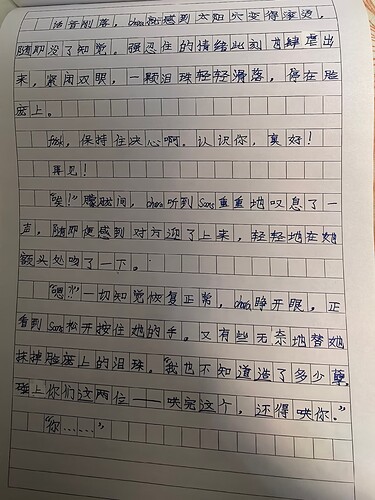 话音刚落，chara就感到太阳穴变得滚烫，
随即没了知觉。强忍住的情绪此刻肆虐出
来，紧闭双眼，一颗泪珠轻轻滑落，停在脸
庞上。
frisk，保持住决心啊。认识你，真好！
再见！
“唉！”朦胧间，chara听到Sans重重地叹息了一
声，随即便感到对方迎了上来，轻轻地在她
额头处吻了一下。
“嗯？！”一切知觉恢复正常，chara睁开眼，正
看到Sans松开按住她的手，又有些无奈地替她
抹掉脸庞上的泪珠。“我也不知道造了多少孽，
碰上你们这两位——哄完这个，还得哄你。”
“你……”